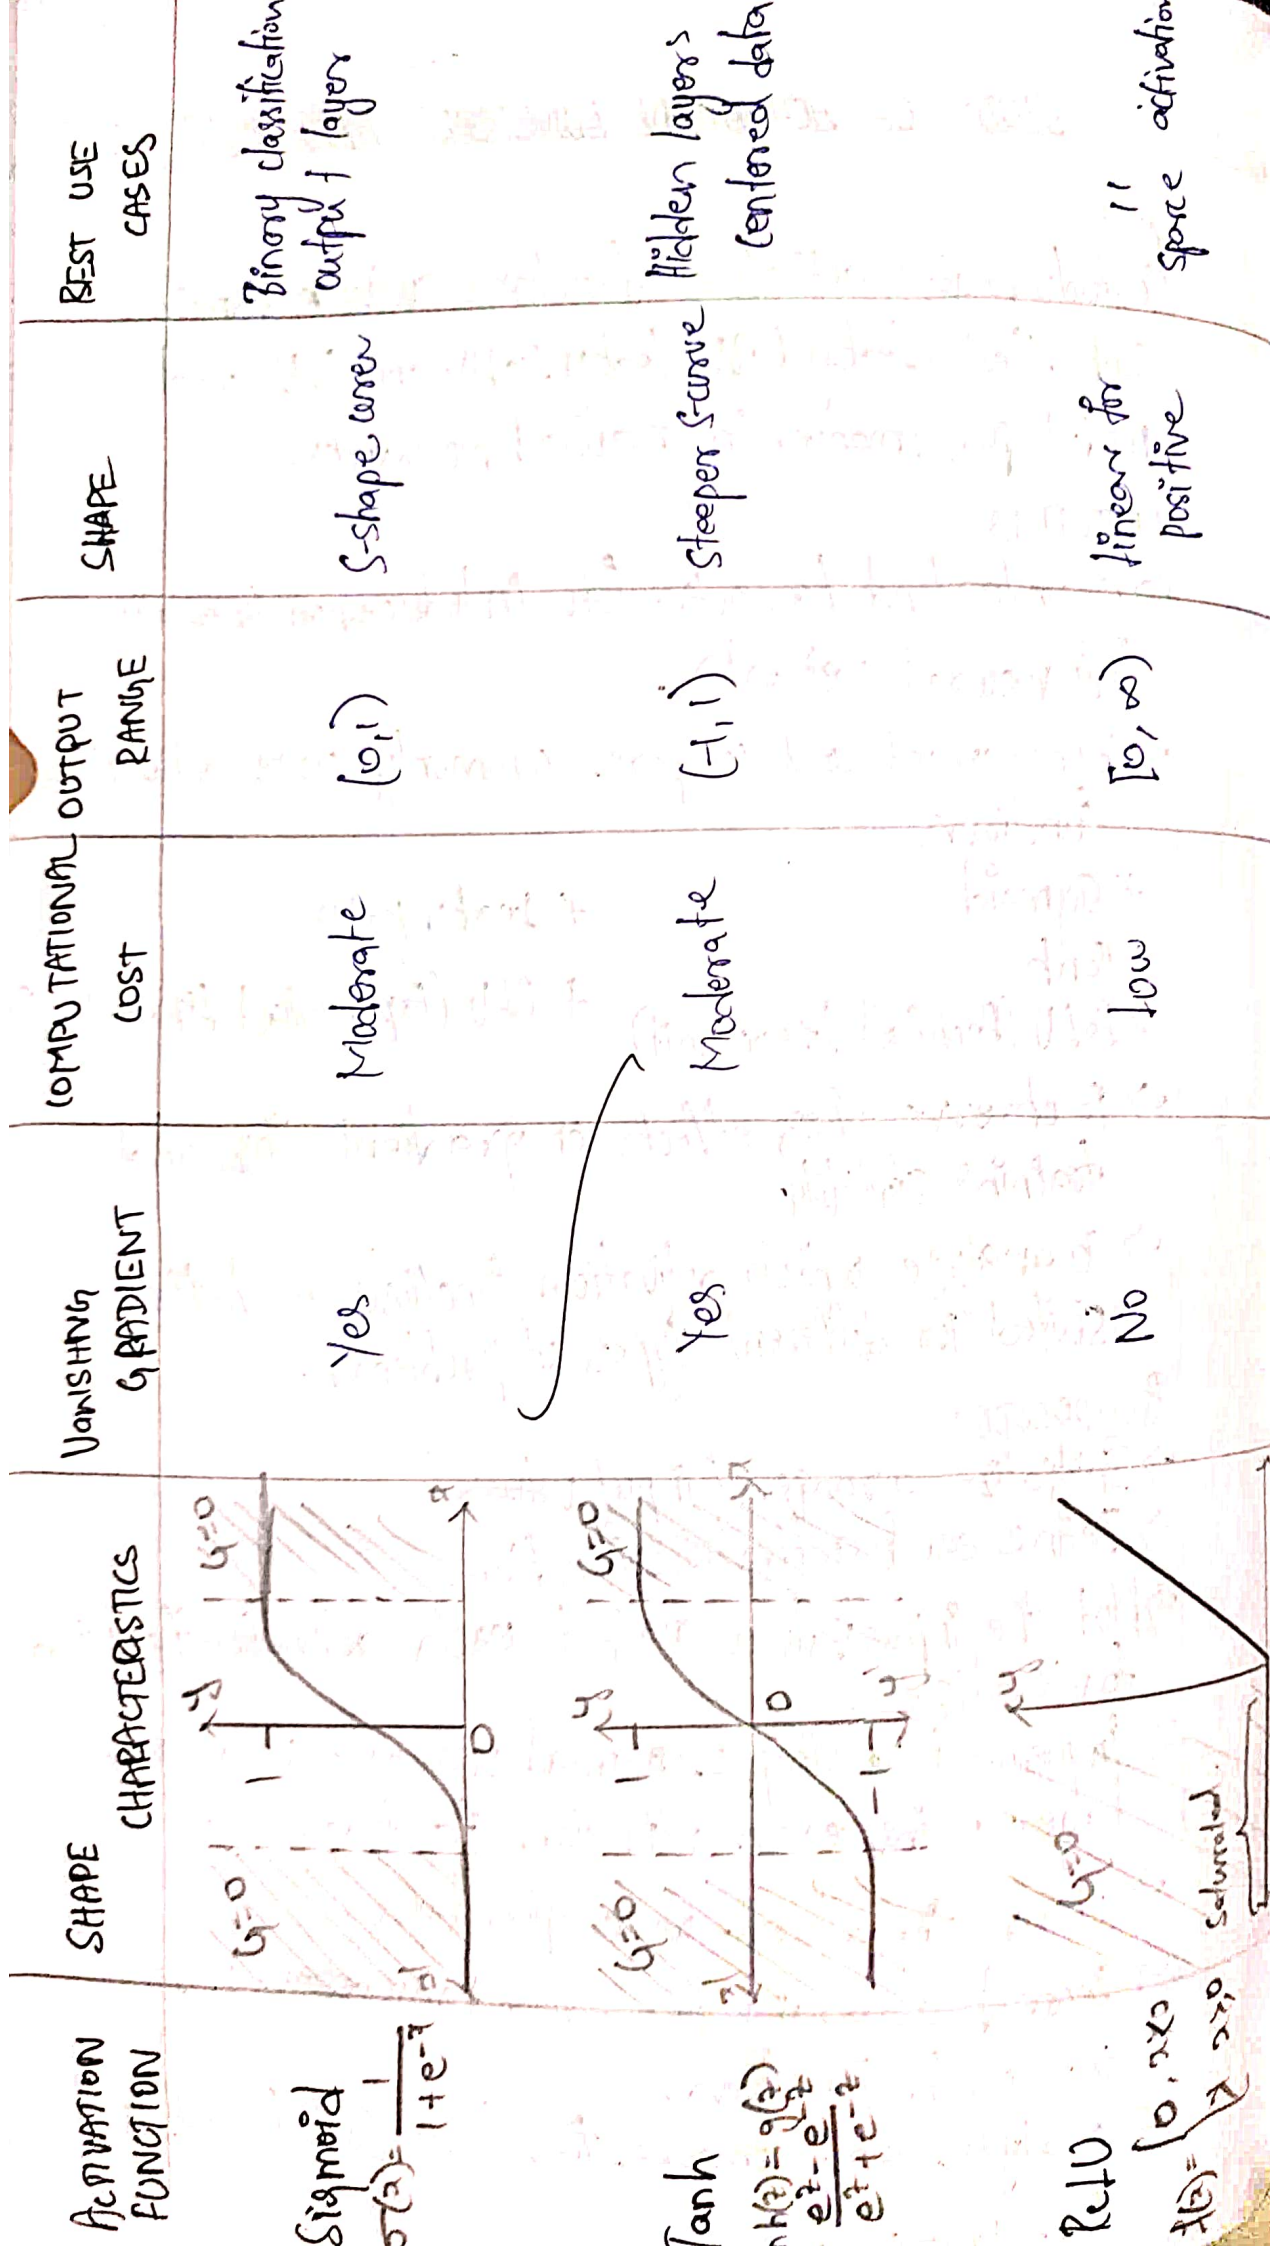 ACTIVATION FUNCTION
SHAPE CHARACTERISTICS
VANISHNG GRADIENT
COMPUTATIONAL COST
OUTPUT RANGE
SHAPE
BEST USE CASES
Sigmoid
σ(z) = 1 / 1 + e^-z
G=0
1
y
0
G=0
z
-z
Yes
Moderate
(0,1)
S-shape
Binary classification
output layer
Tanh
h(z) = g(z)
e^z - e^-z / e^z + e^-z
G=0
1
y
0
-1
G=0
-z
Yes
Moderate
(-1,1)
Steeper S-curve
Hidden layers
Centered data
ReLU
f(z) = { 0, z<0
z, z≥0
G=0
y
Saturated
No
Low
[0,∞)
Linear for
positive
"
sparce activation